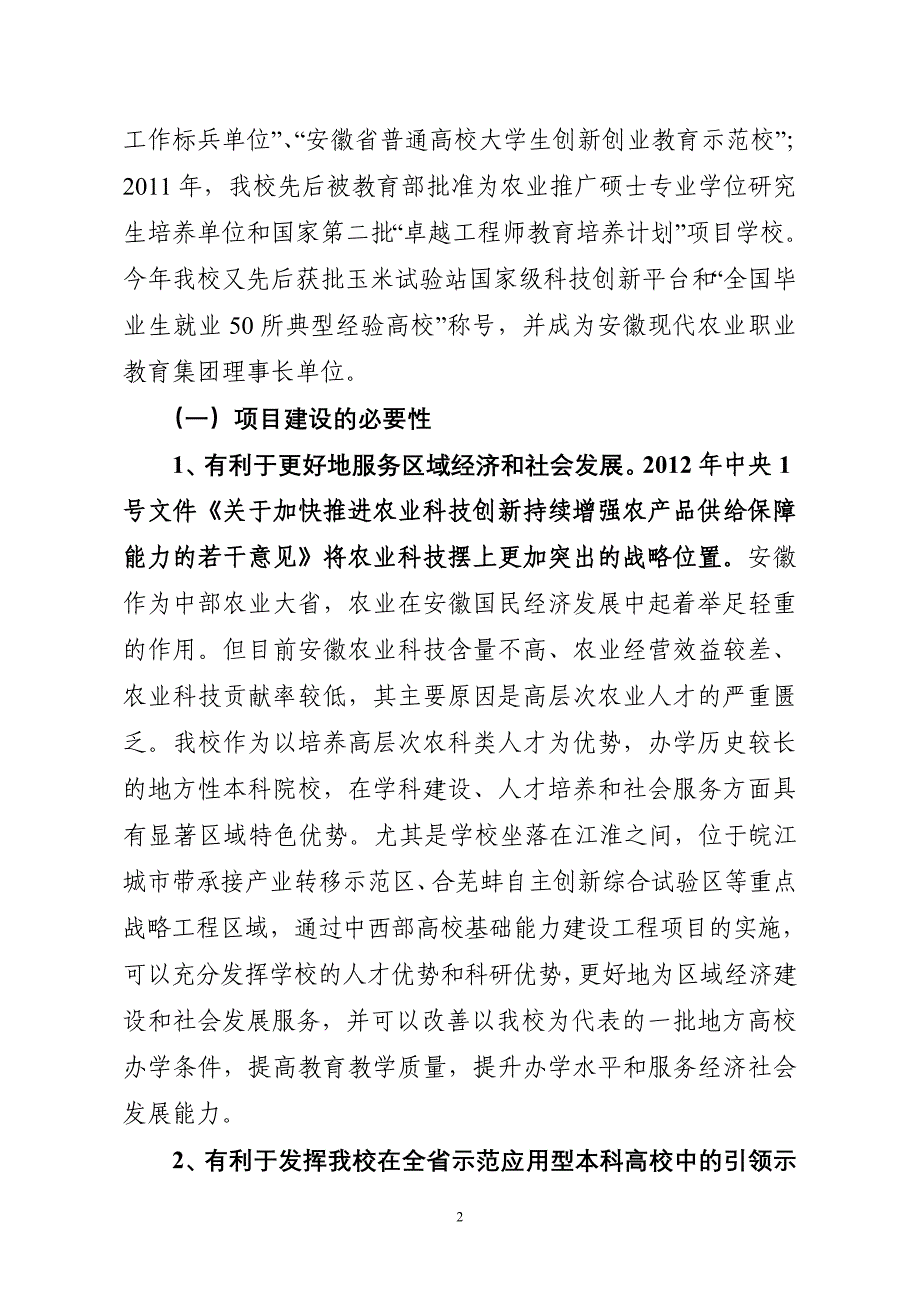 工作标兵单位”、“安徽省普通高校大学生创新创业教育示范校”；
2011 年，我校先后被教育部批准为农业推广硕士专业学位研究
生培养单位和国家第二批“卓越工程师教育培养计划”项目学校。
今年我校又先后获批玉米试验站国家级科技创新平台和“全国毕
业生就业 50 所典型经验高校”称号，并成为安徽现代农业职业
教育集团理事长单位。
（一）项目建设的必要性
1、有利于更好地服务区域经济和社会发展。2012 年中央 1
号文件《关于加快推进农业科技创新持续增强农产品供给保障
能力的若干意见》将农业科技摆上更加突出的战略位置。安徽
作为中部农业大省，农业在安徽国民经济发展中起着举足轻重
的作用。但目前安徽农业科技含量不高、农业经营效益较差、
农业科技贡献率较低，其主要原因是高层次农业人才的严重匮
乏。我校作为以培养高层次农科类人才为优势，办学历史较长
的地方性本科院校，在学科建设、人才培养和社会服务方面具
有显著区域特色优势。尤其是学校坐落在江淮之间，位于皖江
城市带承接产业转移示范区、合芜蚌自主创新综合试验区等重点
战略工程区域，通过中西部高校基础能力建设工程项目的实施，
可以充分发挥学校的人才优势和科研优势，更好地为区域经济建
设和社会发展服务，并可以改善以我校为代表的一批地方高校
办学条件，提高教育教学质量，提升办学水平和服务经济社会
发展能力。
2、有利于发挥我校在全省示范应用型本科高校中的引领示
2